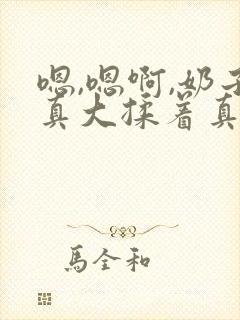 嗯,嗯啊,奶子
真大揉着真
馬全和